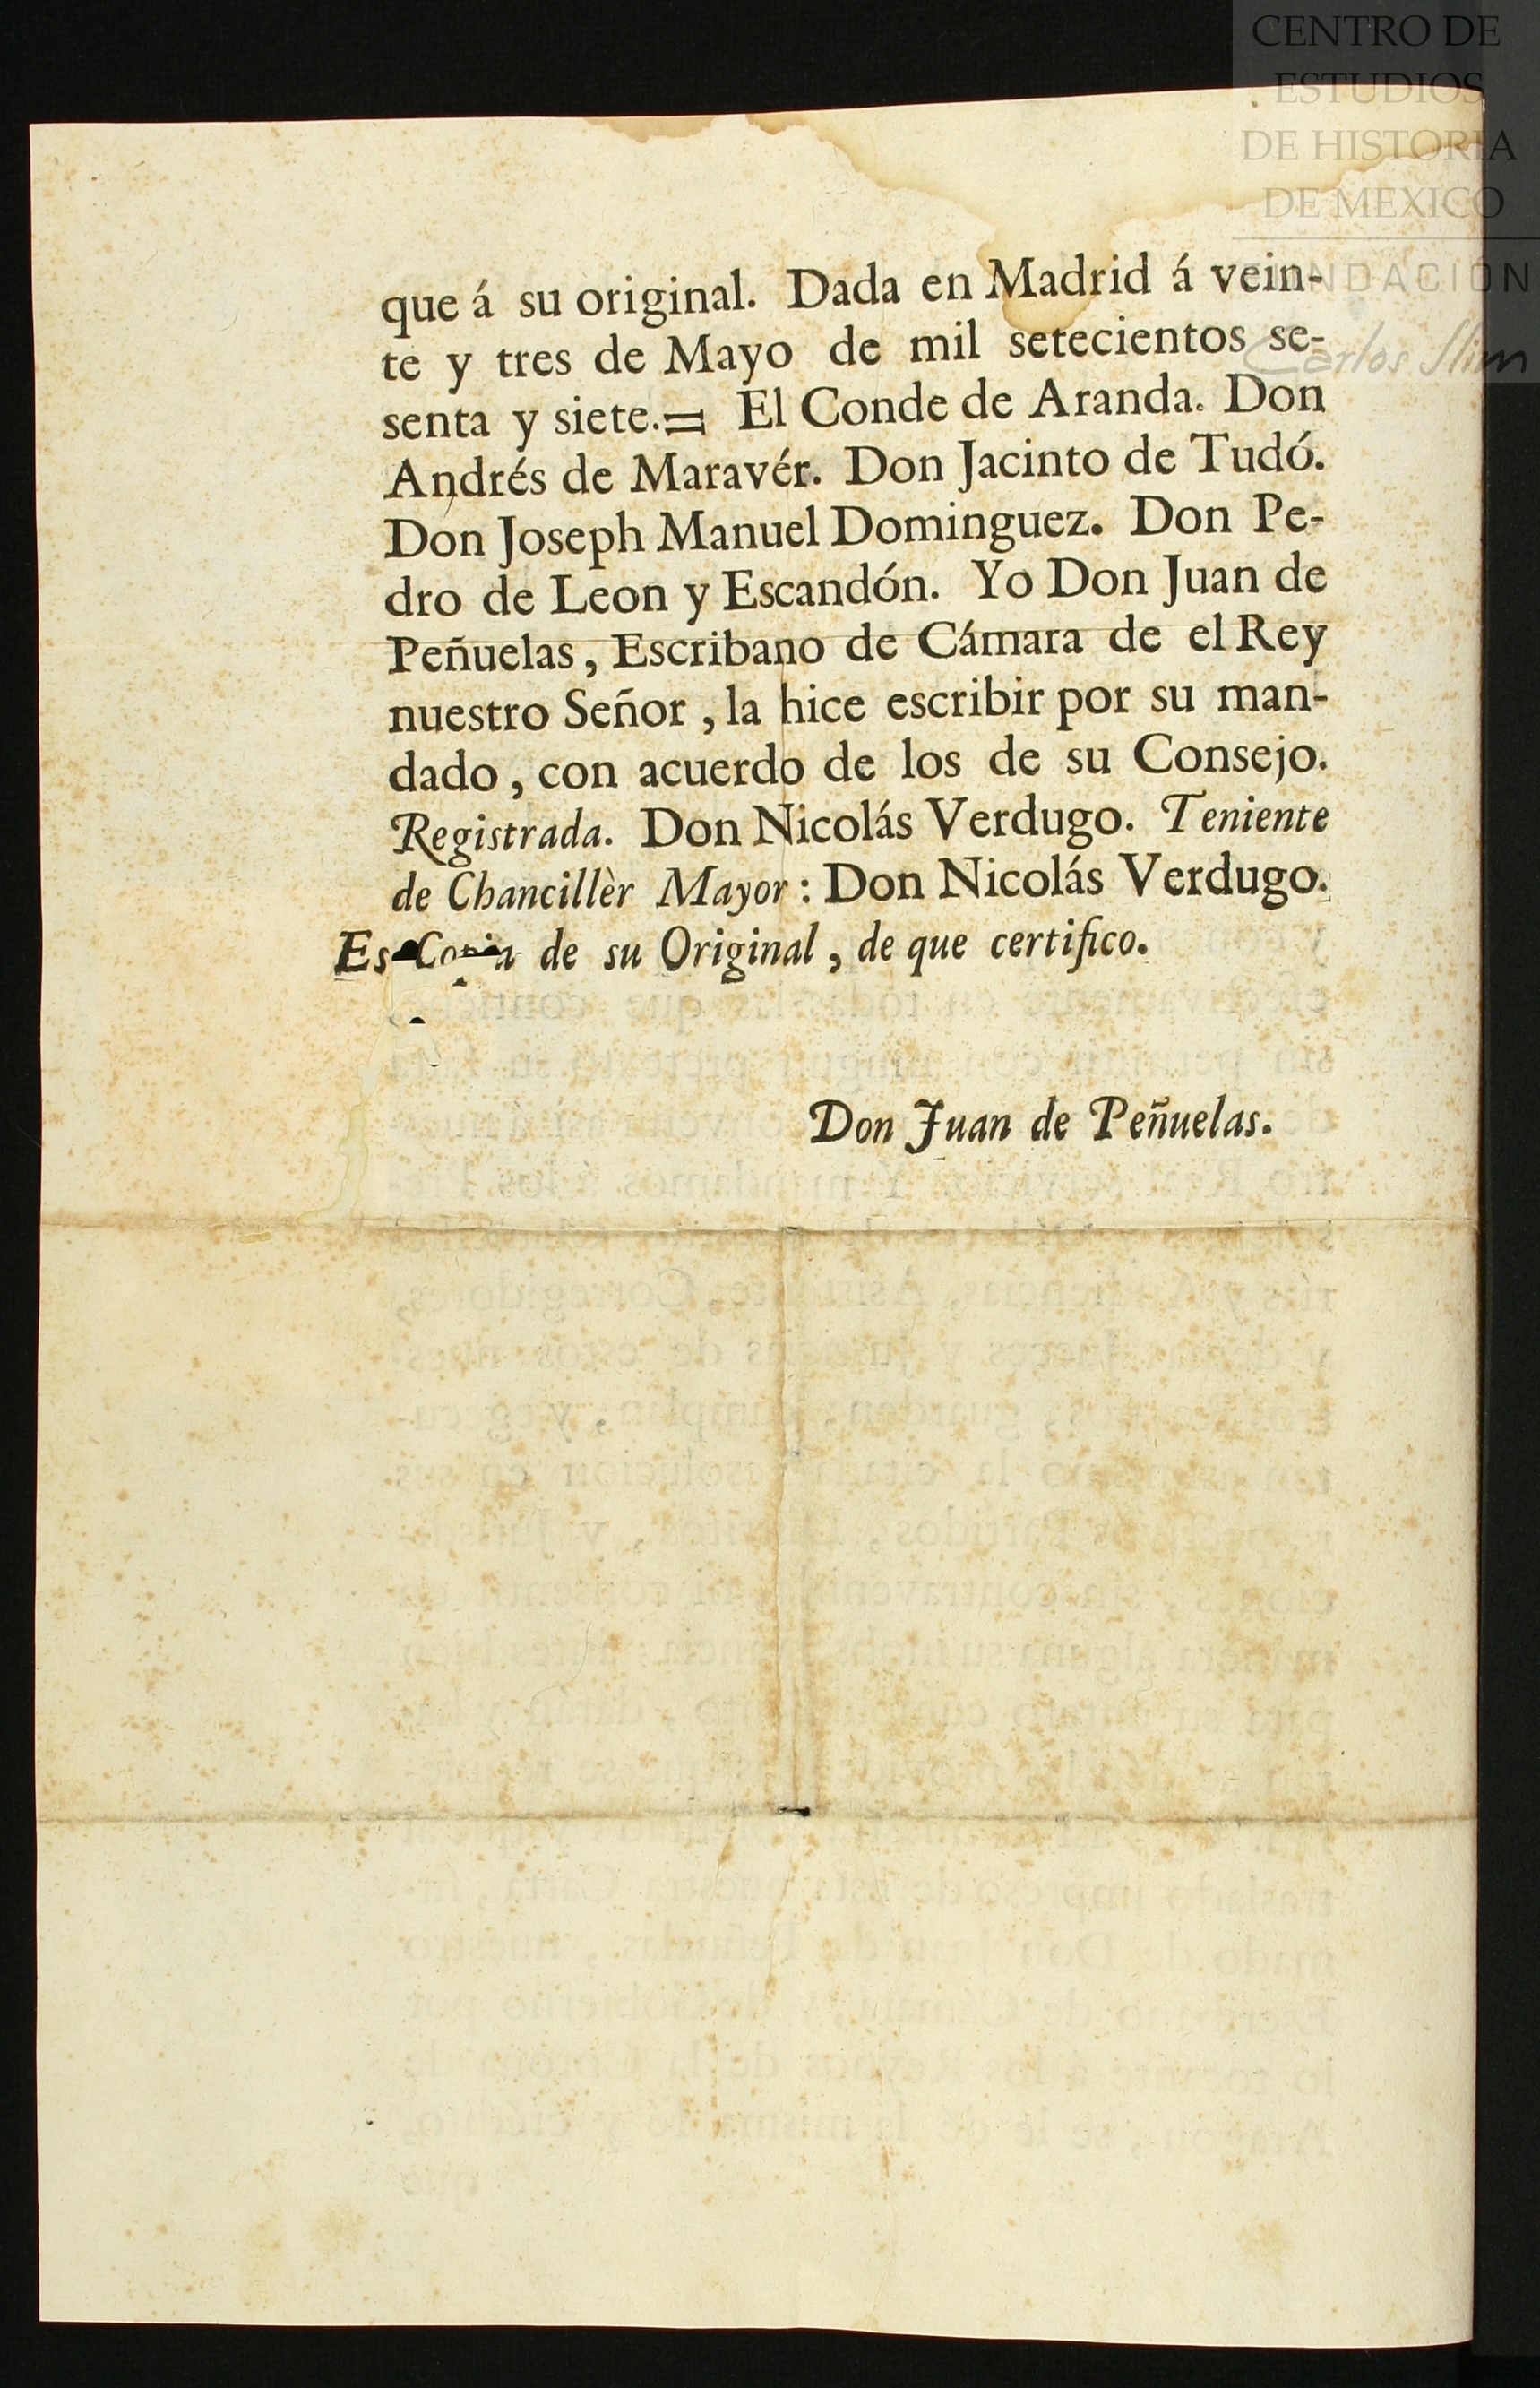 CENTRO DE
ESTUDIOS
DE HISTORIA
DE MEXICO
FUNDACIÓN
Carlos Slim
que á su original. Dada en Madrid á vein-
te y tres de Mayo de mil setecientos se-
senta y siete.= El Conde de Aranda. Don
Andrés de Maravér. Don Jacinto de Tudó.
Don Joseph Manuel Dominguez. Don Pe-
dro de Leon y Escandón. Yo Don Juan de
Peñuelas, Escribano de Cámara de el Rey
nuestro Señor, la hice escribir por su man-
dado, con acuerdo de los de su Consejo.
Registrada. Don Nicolás Verdugo. Teniente
de Chancillèr Mayor: Don Nicolás Verdugo.
Es Copia de su Original, de que certifico.
Don Juan de Peñuelas.